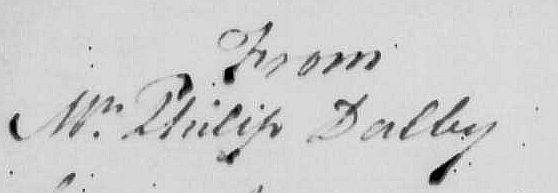 From
Mr. Philip Dalby